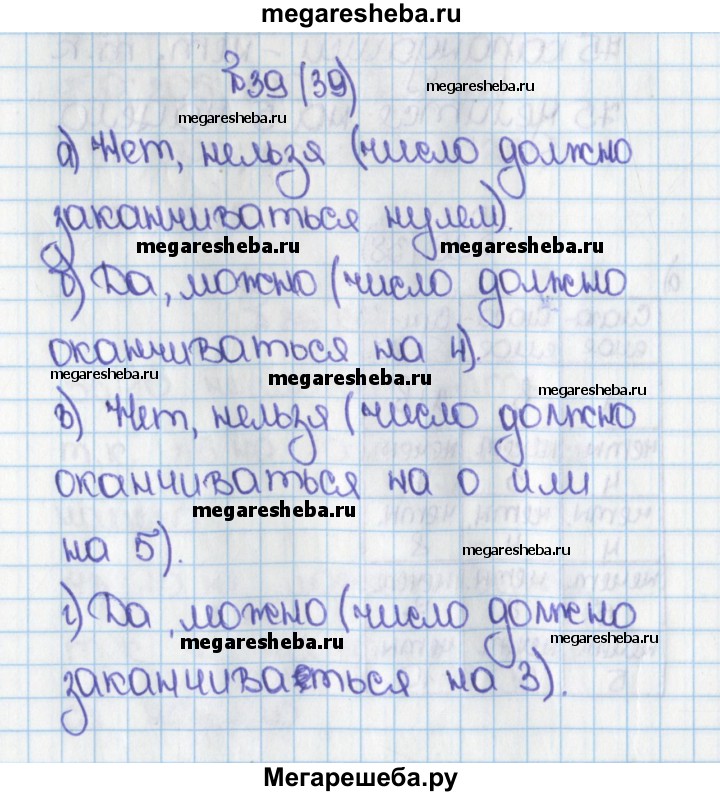 megaresheba.ru
№39 (39)
megaresheba.ru
megaresheba.ru
а) Нет, нельзя (число должно
заканчиваться нулем).
megaresheba.ru
megaresheba.ru
б) Да, можно (число должно
оканчиваться на 4).
megaresheba.ru
megaresheba.ru
megaresheba.ru
в) Нет, нельзя (число должно
оканчиваться на 0 или
megaresheba.ru
megaresheba.ru
на 5).
г) Да, можно (число должно
megaresheba.ru
megaresheba.ru
заканчиваться на 3).
Мегарешеба.ру